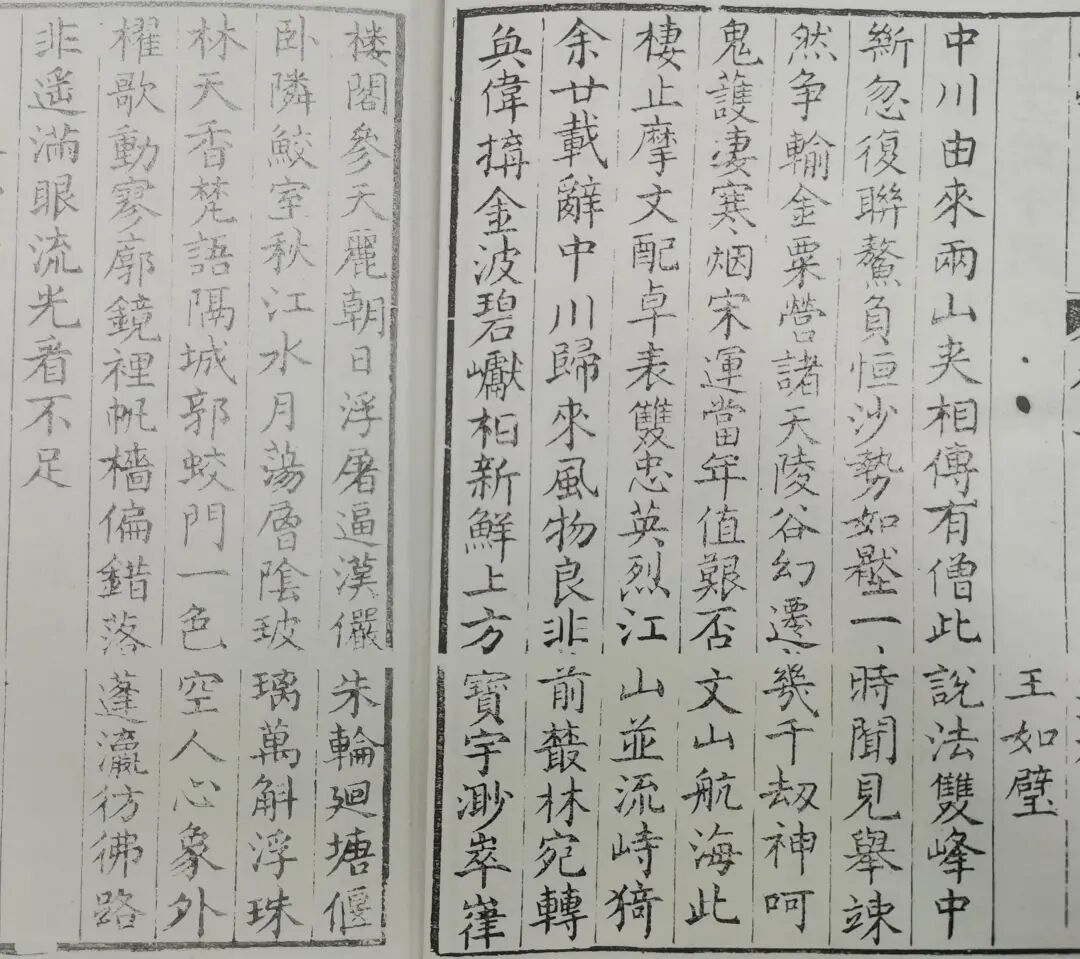 王如璧
中川由來兩山夾相傳有僧此說法雙峰中
斷忽復聯鰲負恒沙勢如壓一時聞見舉竦
然争輸金粟營諸天陵谷幻遷幾千刼神呵
鬼護凄寒烟宋運當年值艱否文山航海此
棲止摩文配卓表雙忠英烈江山並流峙猗
余廿載辭中川歸來風物良非前蕟林宛轉
奐偉搆金波碧巘柏新鮮上方寶宇渺崒嵂
楼閣參天麗朝日浮屠逼漢儼朱輪迴塘偃
卧隣鮫室秋江水月蕩層陰玻璃萬斛浮珠
林天香梵語隔城郭蛟門一色空人心象外
櫂歌動寥廓鏡裡帆檣偏錯落蓬瀛彷彿路
非遥滿眼流光看不足